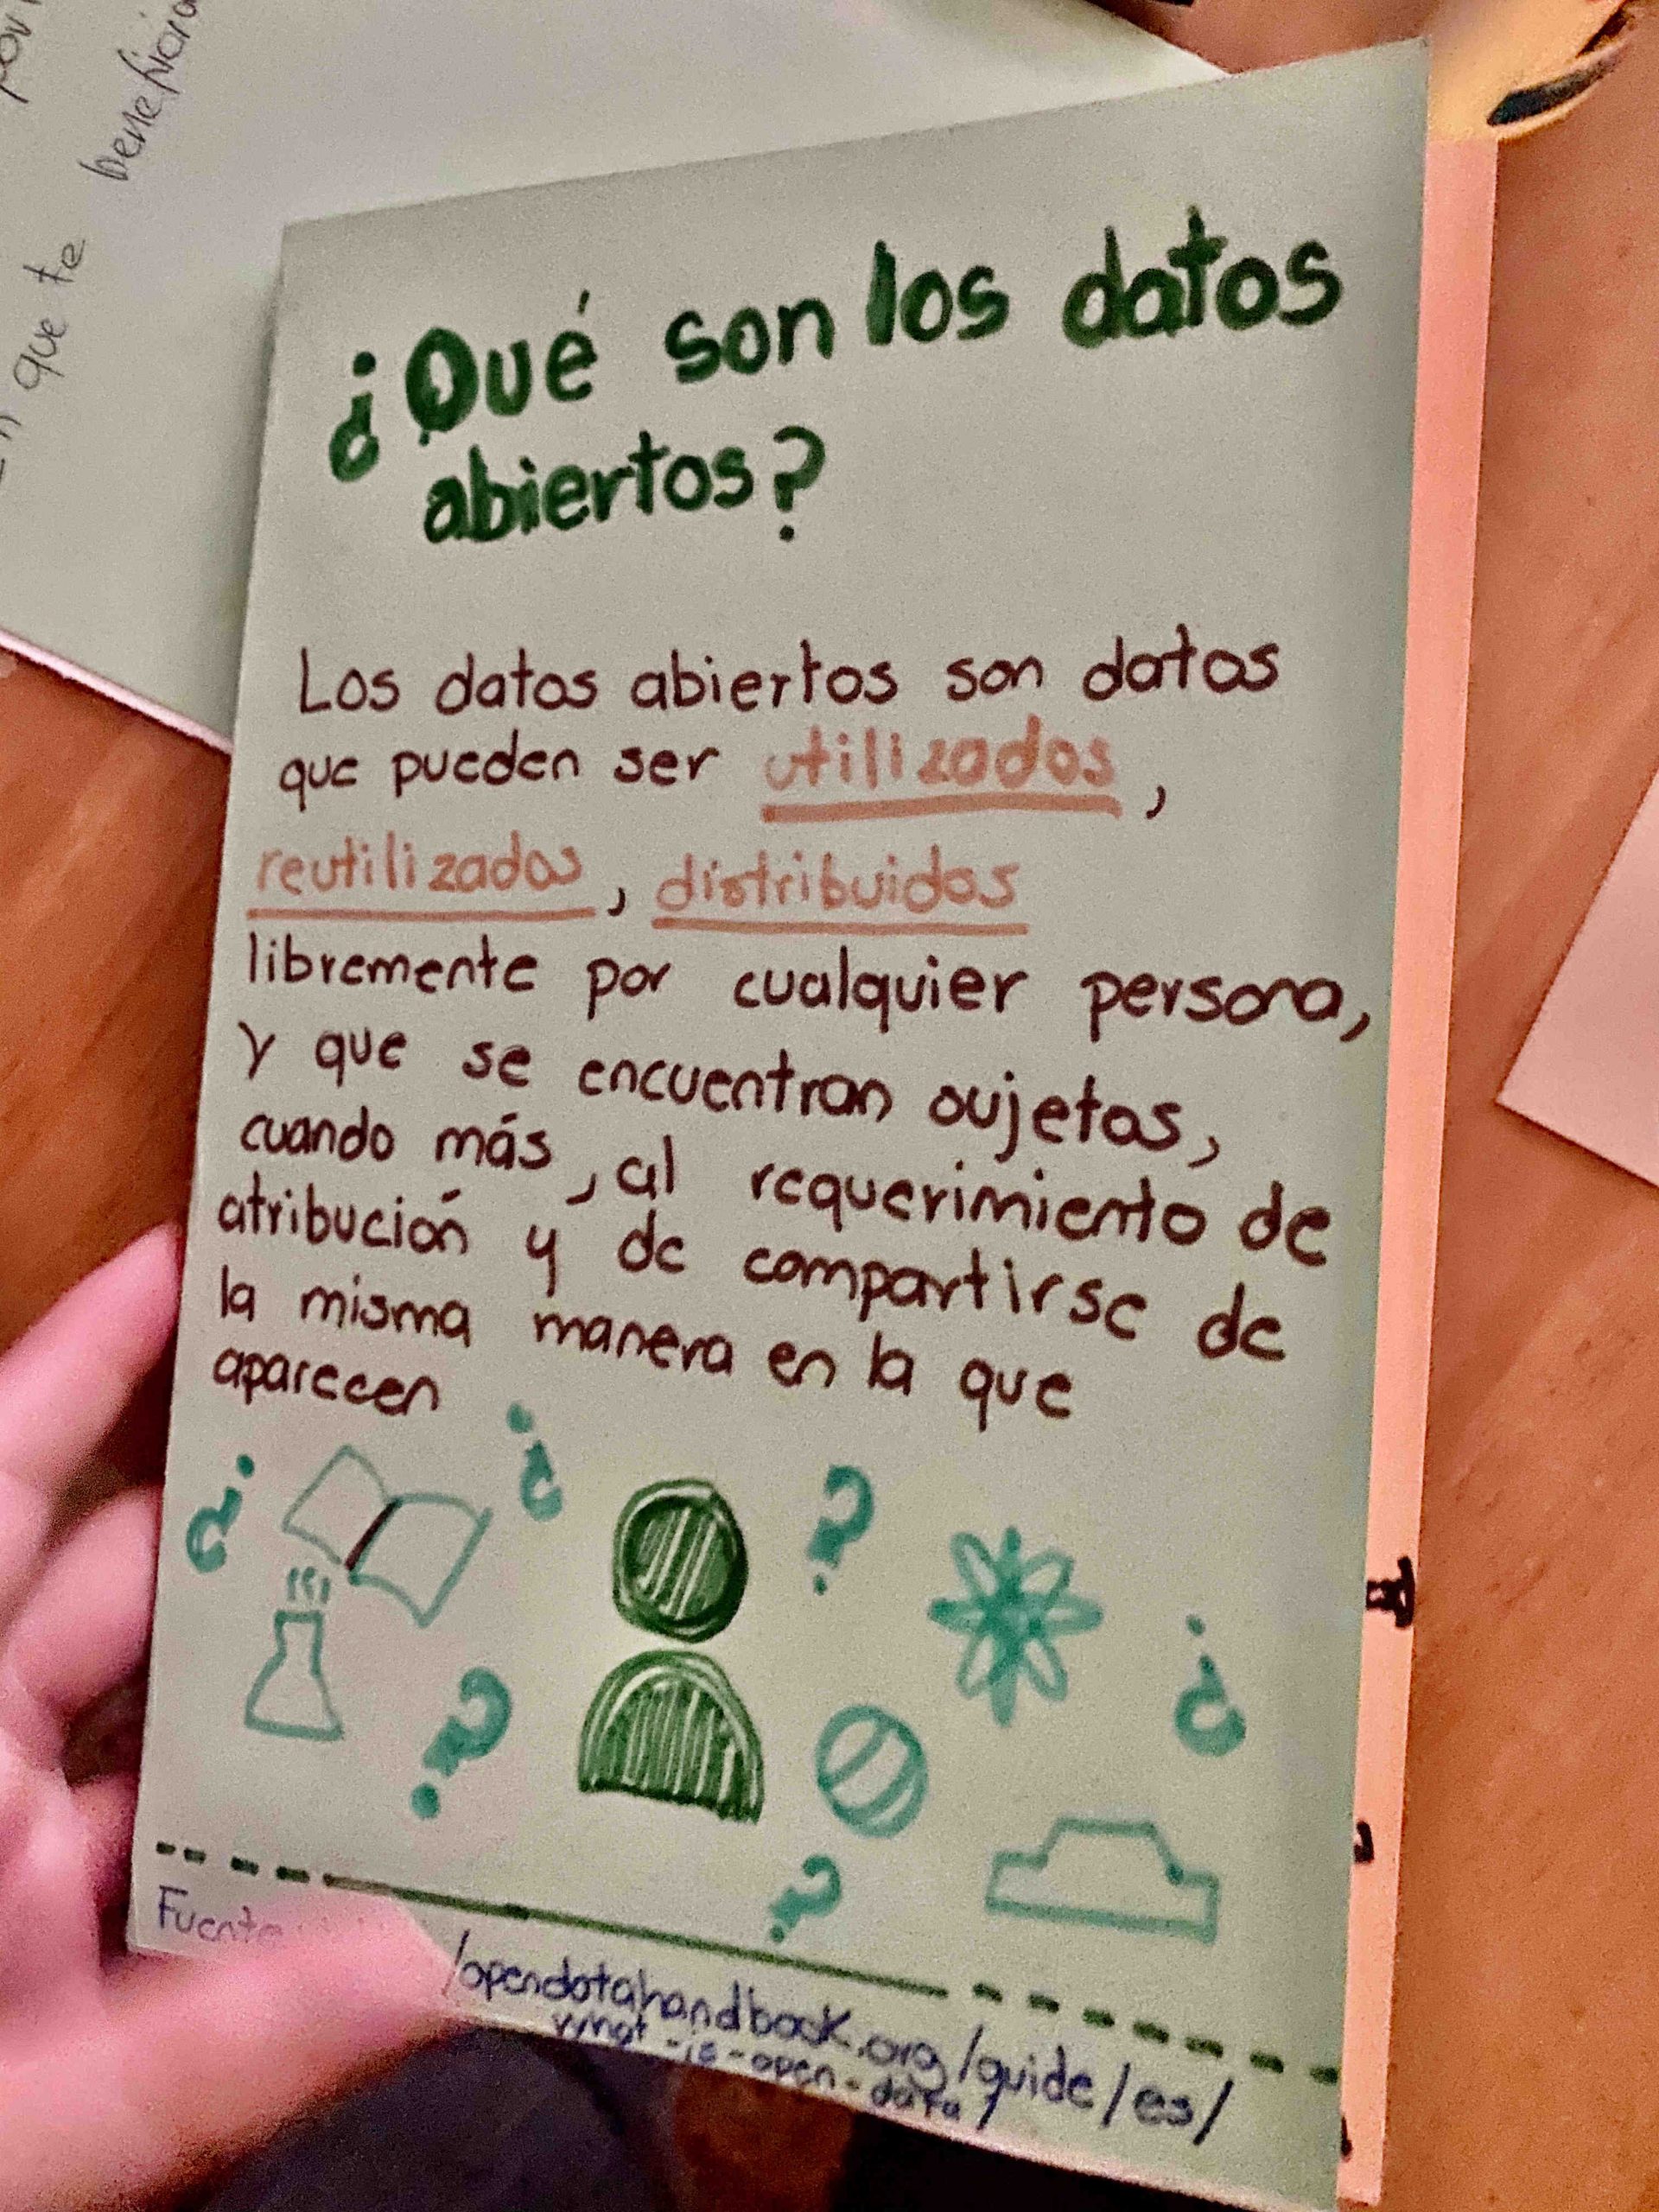 que te
beneficiara
¿Qué son los datos
abiertos?
Los datos abiertos son datos
que pueden ser utilizados,
reutilizados, distribuidos
libremente por cualquier persona,
y que se encuentran sujetos,
cuando más, al requerimiento de
atribución y de compartirse de
la misma manera en la que
aparecen
¿ ¿ ?
? ¿
?
Fuente
/opendatahandbook.org/guide/es/
what-is-open-data/